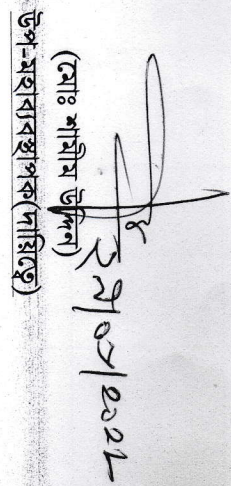 ২৯/০৯/২০২২
(মোঃ শামীম উদ্দিন)
উপ-মহাব্যবস্থাপক(দায়িত্বে)